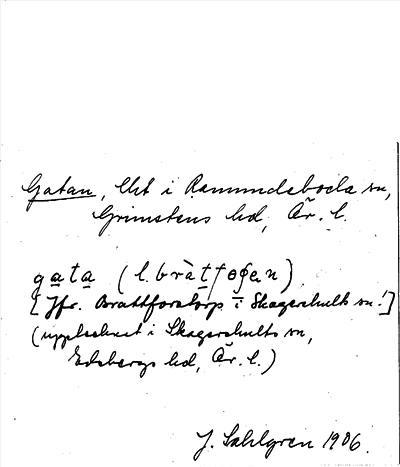 Gatan, Uht i Ramundeboda sn,
Grimstens hd, Ör. l.
gata (l. bràtfọṣạn)
[Jfr. Brattforstorp i Skagershults sn!]
(upptecknat i Skagershults sn,
Edsbergs hd, Ör. l.)
J. Sahlgren 1906.